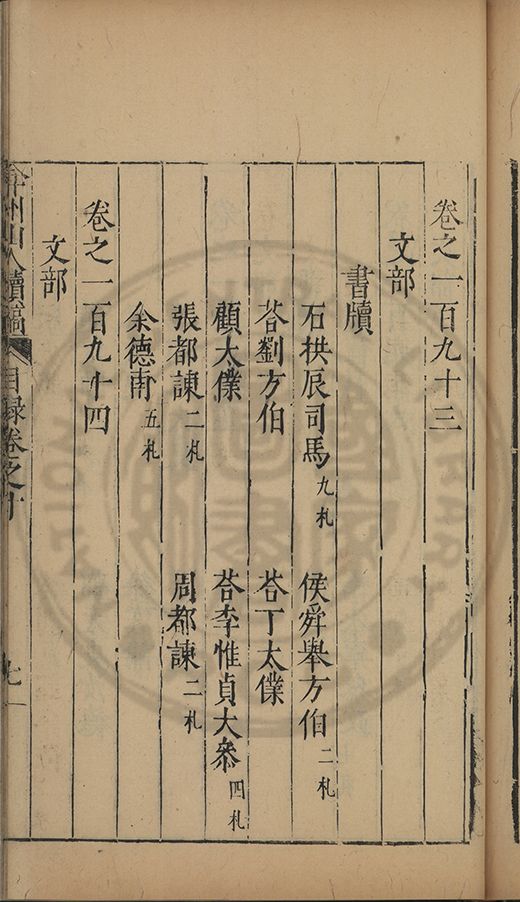 卷之一百九十三
文部
書牘
石拱辰司馬九札 侯舜舉方伯二札
荅劉方伯 荅丁太僕
顧太僕 荅李惟貞大叅四札
張都諫二札 周都諫二札
余德甫五札
卷之一百九十四
文部
弇州山人續稿 目録卷之十 七